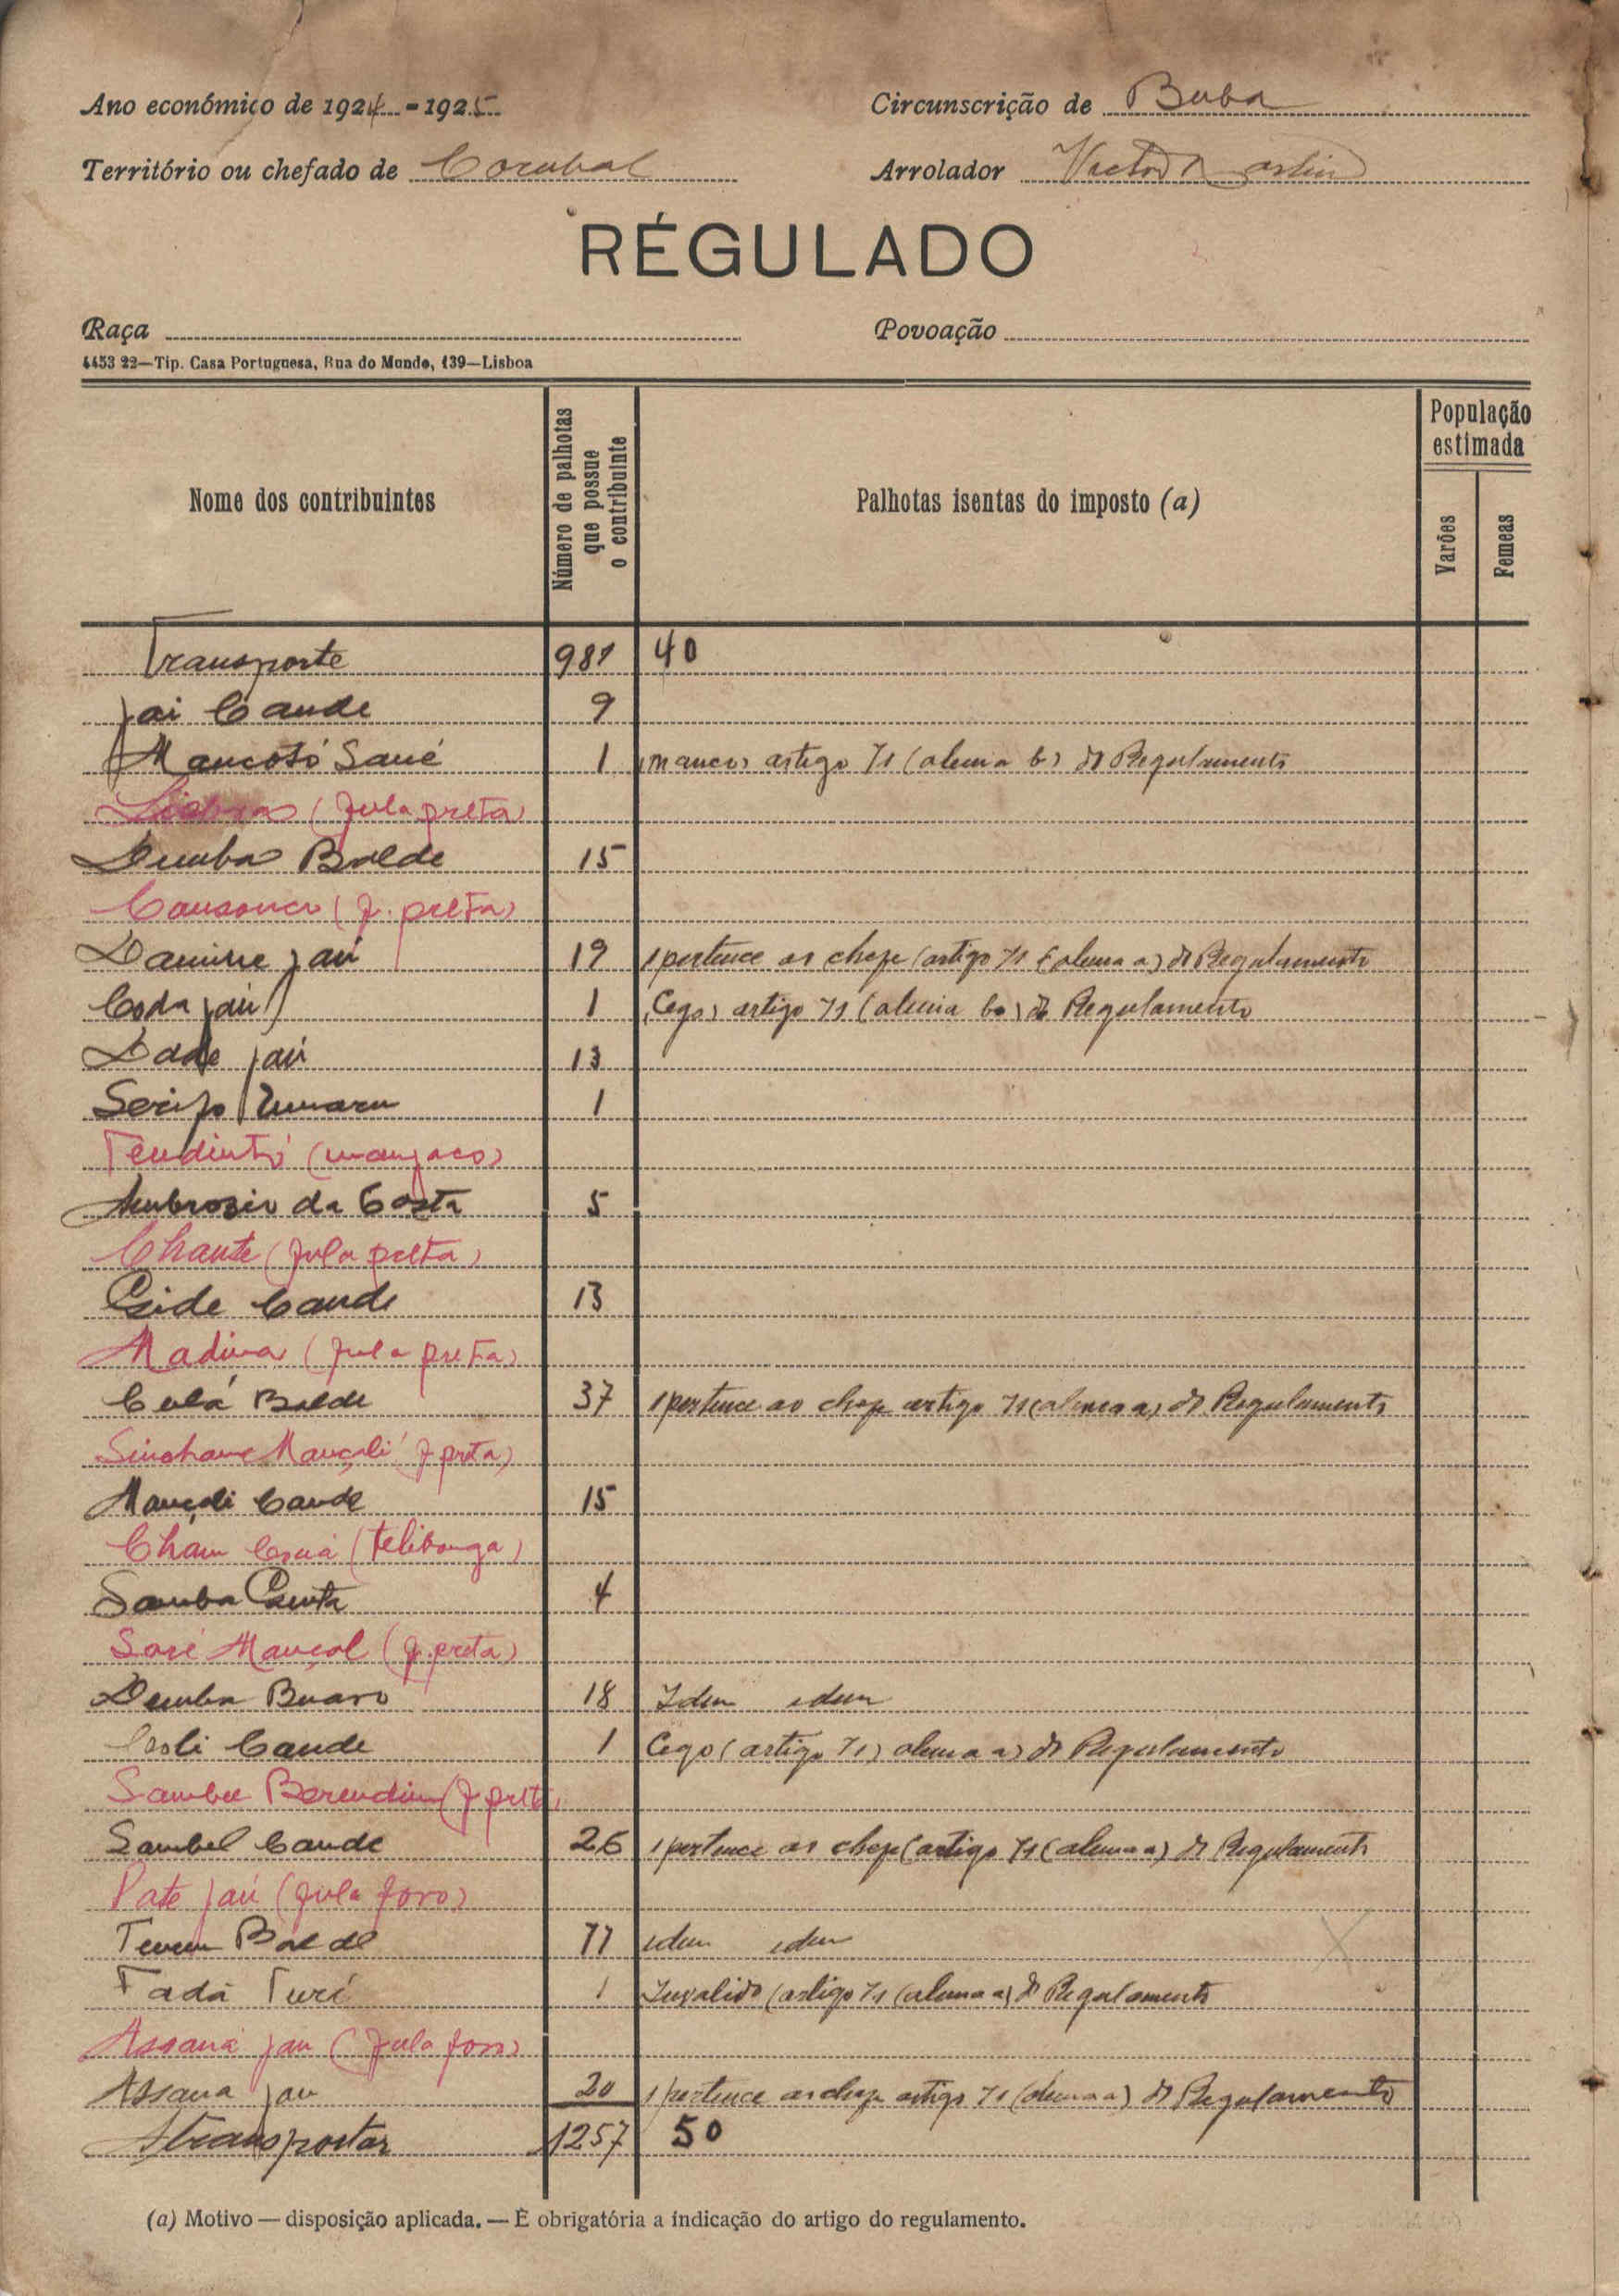 Ano económico de 1924 - 1925
Circunscrição de Buba
Território ou chefado de Corubal
Arrolador Victor Martins
RÉGULADO
Raça
Povoação
4453 22—Tip. Casa Portuguesa, Rua do Mundo, 139—Lisboa
Nome dos contribuintes
Número de palhotas que possue o contribuinte
Palhotas isentas do imposto (a)
População estimada
Varões
Femeas
Transporte 981 40
Jai Cande 9
Mancotó Sané 1 (manco) artigo 71 (alinia b) do Regulamento
(fula preta)
Demba Balde 15
(f. preta)
Jaú 19 1 pertence ao chefe (artigo 71 (alinea a) do Regulamento
Coda Jaú 1 (Cego) artigo 71 (alinia b) do Regulamento
Dade Jaú 13
Serifo Umaru 1
Tendintó (manjaco)
Ambrosio da Costa 5
Chante (fula preta)
Cande 13
Madina (fula preta)
Culá Balde 37 1 pertence ao chefe artigo 71 (alinea a) do Regulamento
Sinchane Mançali (f preta)
Mançali Cande 15
Cham (telibonga)
Samba 4
Saré Mançal (f. preta)
Demba Buaro 18 Idem idem
Cande 1 Cego (artigo 71) alinea a) do Regulamento
Sambel Berendim (f preta)
Sambel Cande 26 1 pertence ao chefe (artigo 71 (alinea a) do Regulamento
Pate Jaú (fula foro)
Balde 77 idem idem
Fadá Turé 1 Invalido (artigo 71 (alinea a) do Regulamento
Assaná Jau (fula foro)
Assana Jau 20 1 pertence ao chefe artigo 71 (alinea a) do Regulamento
A transportar 1257 50
(a) Motivo — disposição aplicada. — É obrigatória a indicação do artigo do regulamento.